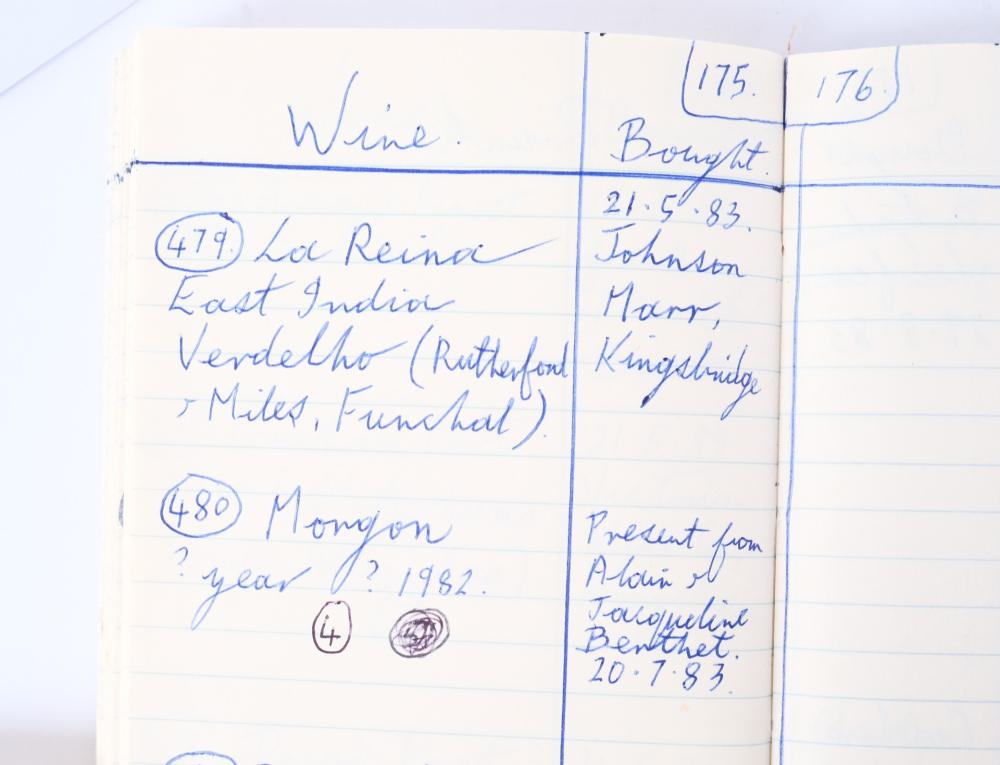 175. 176.
Wine. Bought.
21·5·83.
479. La Reina Johnson
East India Marr,
Verdelho (Rutherford Kingsbridge
& Miles, Funchal).
480 Morgon Present from
? year ? 1982. Alain &
4 Jacqueline
Berthet.
20·7·83.